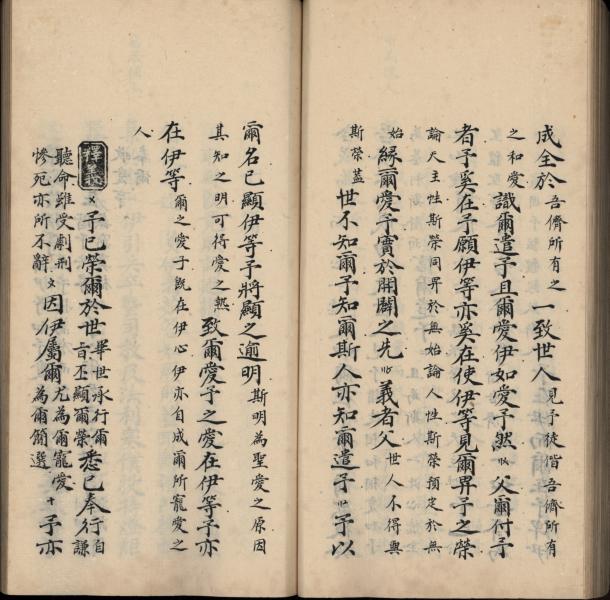 成全於吾儕所有之一致世人見予徒皆吾儕所有
之和愛識爾遣予且爾愛伊如愛予然父爾付予
者予奚在予願伊等亦奚在使伊等見爾畀予之榮
論天主性斯榮同畀於無始論人性斯榮預定於無
始緣爾愛予實於開闢之先義者父世人不得與
斯榮蓋世不知爾予知爾斯人亦知爾遣予予以
爾名已顯伊等予將顯之逾明斯明為聖愛之原因
其知之明可得愛之熱致爾愛予之愛在伊等予亦
在伊等爾之愛予既在伊心伊亦自成爾所寵愛之
人
釋義〤予已榮爾於世畢世承行爾旨丕顯爾榮悉已奉行自謙
聽命雖受劇刑慘死亦所不辭因伊屬爾尤為爾寵愛為爾簡選十予亦